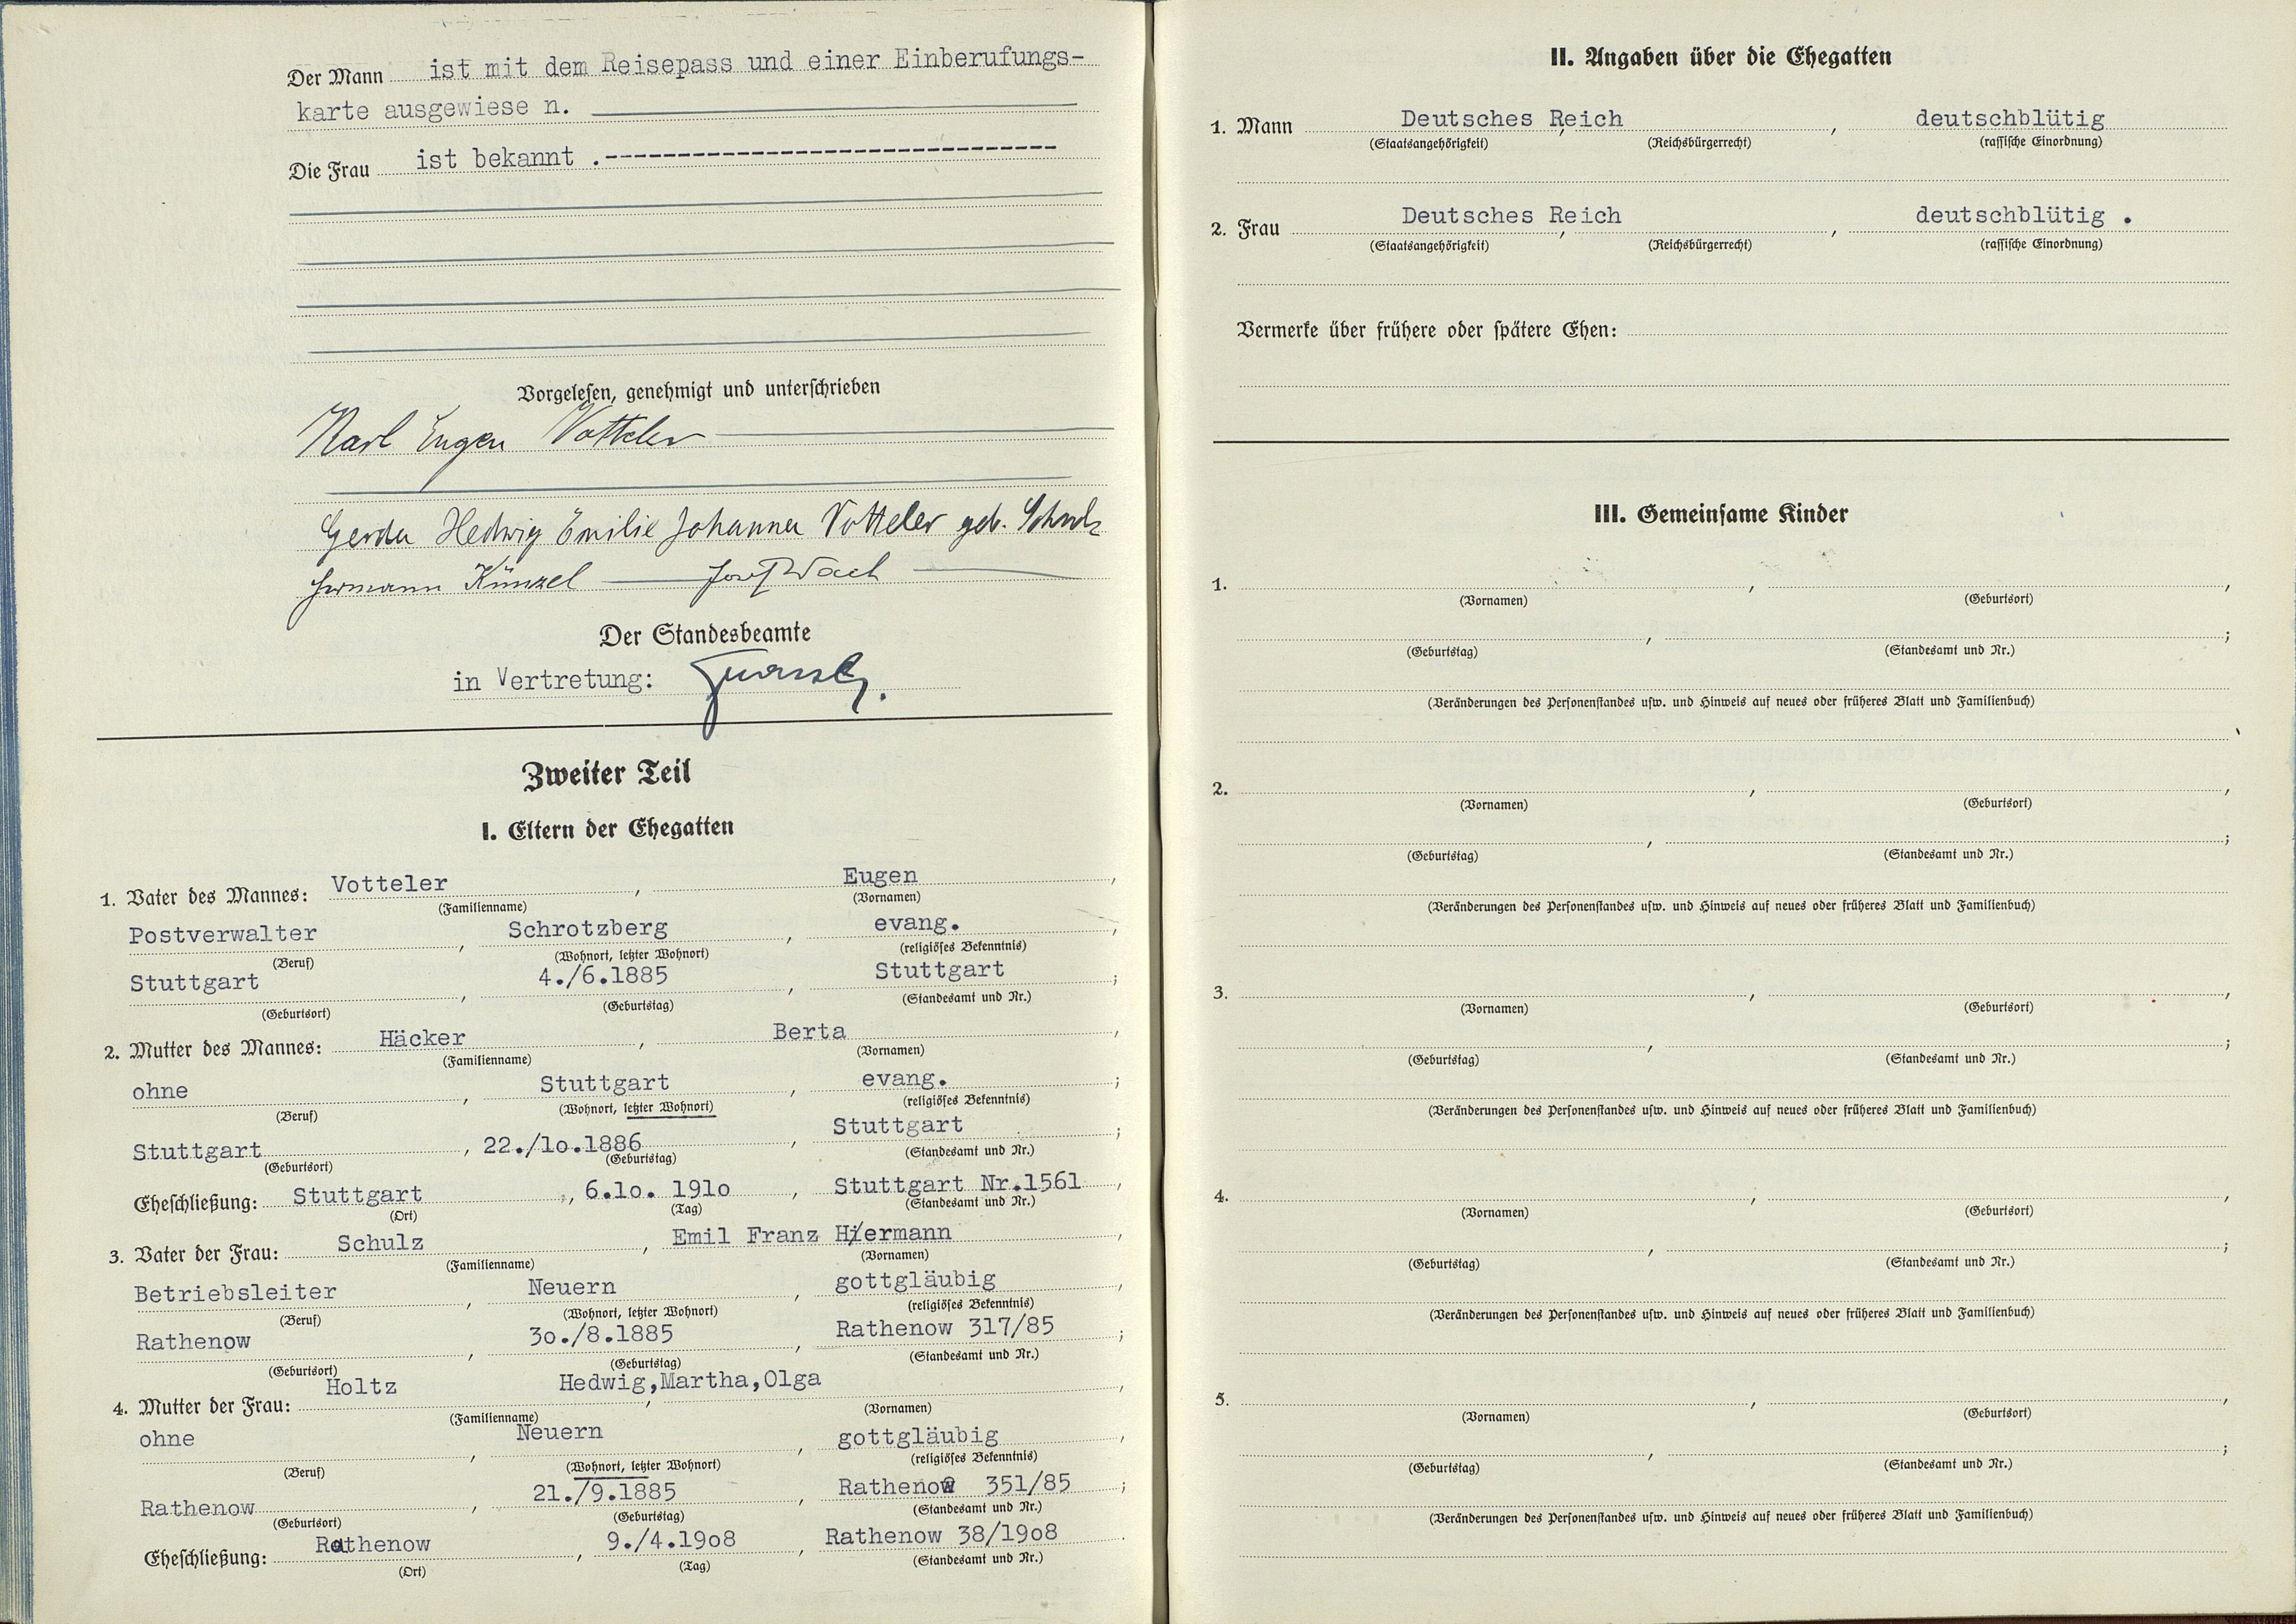 Der Mann ist mit dem Reisepass und einer Einberufungs-
karte ausgewiese n.
Die Frau ist bekannt .-------------------------------
Vorgelesen, genehmigt und unterschrieben
Karl Eugen Votteler
Gerda Hedwig Emilie Johanna Votteler geb. Schulz
Hermann Künzel Josef Wach
Der Standesbeamte
in Vertretung:
Zweiter Teil
I. Eltern der Ehegatten
1. Vater des Mannes: Votteler , Eugen ,
(Familienname) (Vornamen)
Postverwalter , Schrotzberg , evang. ,
(Beruf) (Wohnort, letzter Wohnort) (religiöses Bekenntnis)
Stuttgart , 4./6.1885 , Stuttgart ;
(Geburtsort) (Geburtstag) (Standesamt und Nr.)
2. Mutter des Mannes: Häcker , Berta ,
(Familienname) (Vornamen)
ohne , Stuttgart , evang. ;
(Beruf) (Wohnort, letzter Wohnort) (religiöses Bekenntnis)
Stuttgart , 22./1o.1886 , Stuttgart ;
(Geburtsort) (Geburtstag) (Standesamt und Nr.)
Eheschließung: Stuttgart , 6.1o. 191o , Stuttgart Nr.1561 ,
(Ort) (Tag) (Standesamt und Nr.)
3. Vater der Frau: Schulz , Emil Franz Hermann ,
(Familienname) (Vornamen)
Betriebsleiter , Neuern , gottgläubig ,
(Beruf) (Wohnort, letzter Wohnort) (religiöses Bekenntnis)
Rathenow , 3o./8.1885 , Rathenow 317/85 ;
(Geburtsort) (Geburtstag) (Standesamt und Nr.)
4. Mutter der Frau: Holtz , Hedwig,Martha,Olga ,
(Familienname) (Vornamen)
ohne , Neuern , gottgläubig ,
(Beruf) (Wohnort, letzter Wohnort) (religiöses Bekenntnis)
Rathenow , 21./9.1885 , Rathenow 351/85 ;
(Geburtsort) (Geburtstag) (Standesamt und Nr.)
Eheschließung: Rathenow , 9./4.19o8 , Rathenow 38/19o8 .
(Ort) (Tag) (Standesamt und Nr.)
II. Angaben über die Ehegatten
1. Mann Deutsches Reich , , deutschblütig
(Staatsangehörigkeit) (Reichsbürgerrecht) (rassische Einordnung)
2. Frau Deutsches Reich , , deutschblütig .
(Staatsangehörigkeit) (Reichsbürgerrecht) (rassische Einordnung)
Vermerke über frühere oder spätere Ehen:
III. Gemeinsame Kinder
1. , ,
(Vornamen) (Geburtsort)
, ;
(Geburtstag) (Standesamt und Nr.)
(Veränderungen des Personenstandes usw. und Hinweis auf neues oder früheres Blatt und Familienbuch)
2. , ,
(Vornamen) (Geburtsort)
, ;
(Geburtstag) (Standesamt und Nr.)
(Veränderungen des Personenstandes usw. und Hinweis auf neues oder früheres Blatt und Familienbuch)
3. , ,
(Vornamen) (Geburtsort)
, ;
(Geburtstag) (Standesamt und Nr.)
(Veränderungen des Personenstandes usw. und Hinweis auf neues oder früheres Blatt und Familienbuch)
4. , ,
(Vornamen) (Geburtsort)
, ;
(Geburtstag) (Standesamt und Nr.)
(Veränderungen des Personenstandes usw. und Hinweis auf neues oder früheres Blatt und Familienbuch)
5. , ,
(Vornamen) (Geburtsort)
, ;
(Geburtstag) (Standesamt und Nr.)
(Veränderungen des Personenstandes usw. und Hinweis auf neues oder früheres Blatt und Familienbuch)